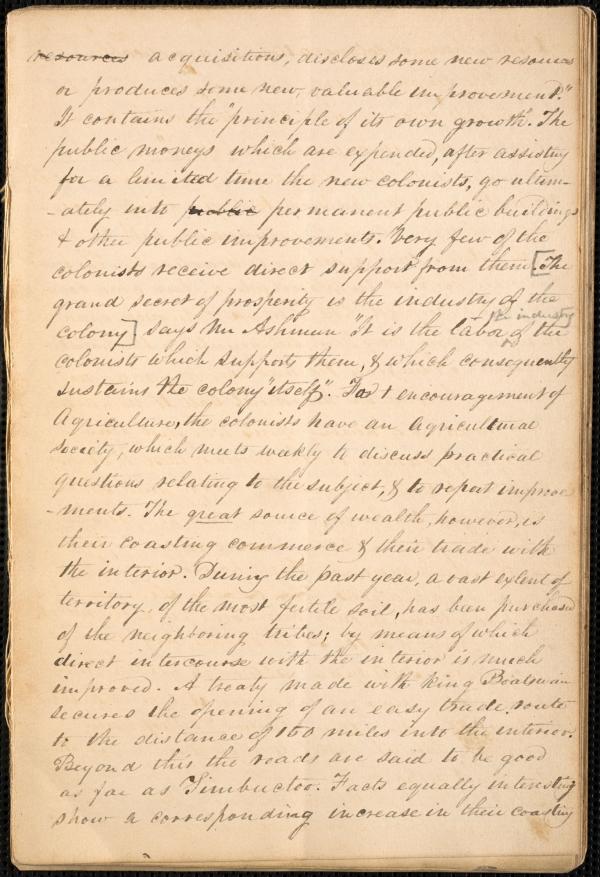 resources acquisitions, discloses some new resources
or produces some new, valuable improvement."
It contains the "principle of its own growth". The
public moneys which are expended, after assisting
for a limited time the new colonists, go ultim-
-ately into public permanent public buildings
& other public improvements. "Very few of the
colonists receive direct support" from them. [The
grand secret of prosperity is the industry of the
colony.] says Mr Ashmun "It is the labor of the
the industry
colonists which supports them, & which consequently
sustains the colony "itself". For encouragement of
Agriculture, the colonists have an Agricultural
Society, which meets weekly to discuss practical
questions relating to the subject, & to report improve
-ments. The great source of wealth, however, is
their coasting commerce & their trade with
the interior. During the past year, a vast extent of
territory, of the most fertile soil, has been purchased
of the neighboring tribes; by means of which
direct intercourse with the interior is much
improved. A treaty made with king Boatswain
secures the opening of an easy trade route
to the distance of 100 miles into the interior.
Beyond this the roads are said to be good
as far as Timbuctoo. Facts equally interesting
show a corresponding increase in their coasting